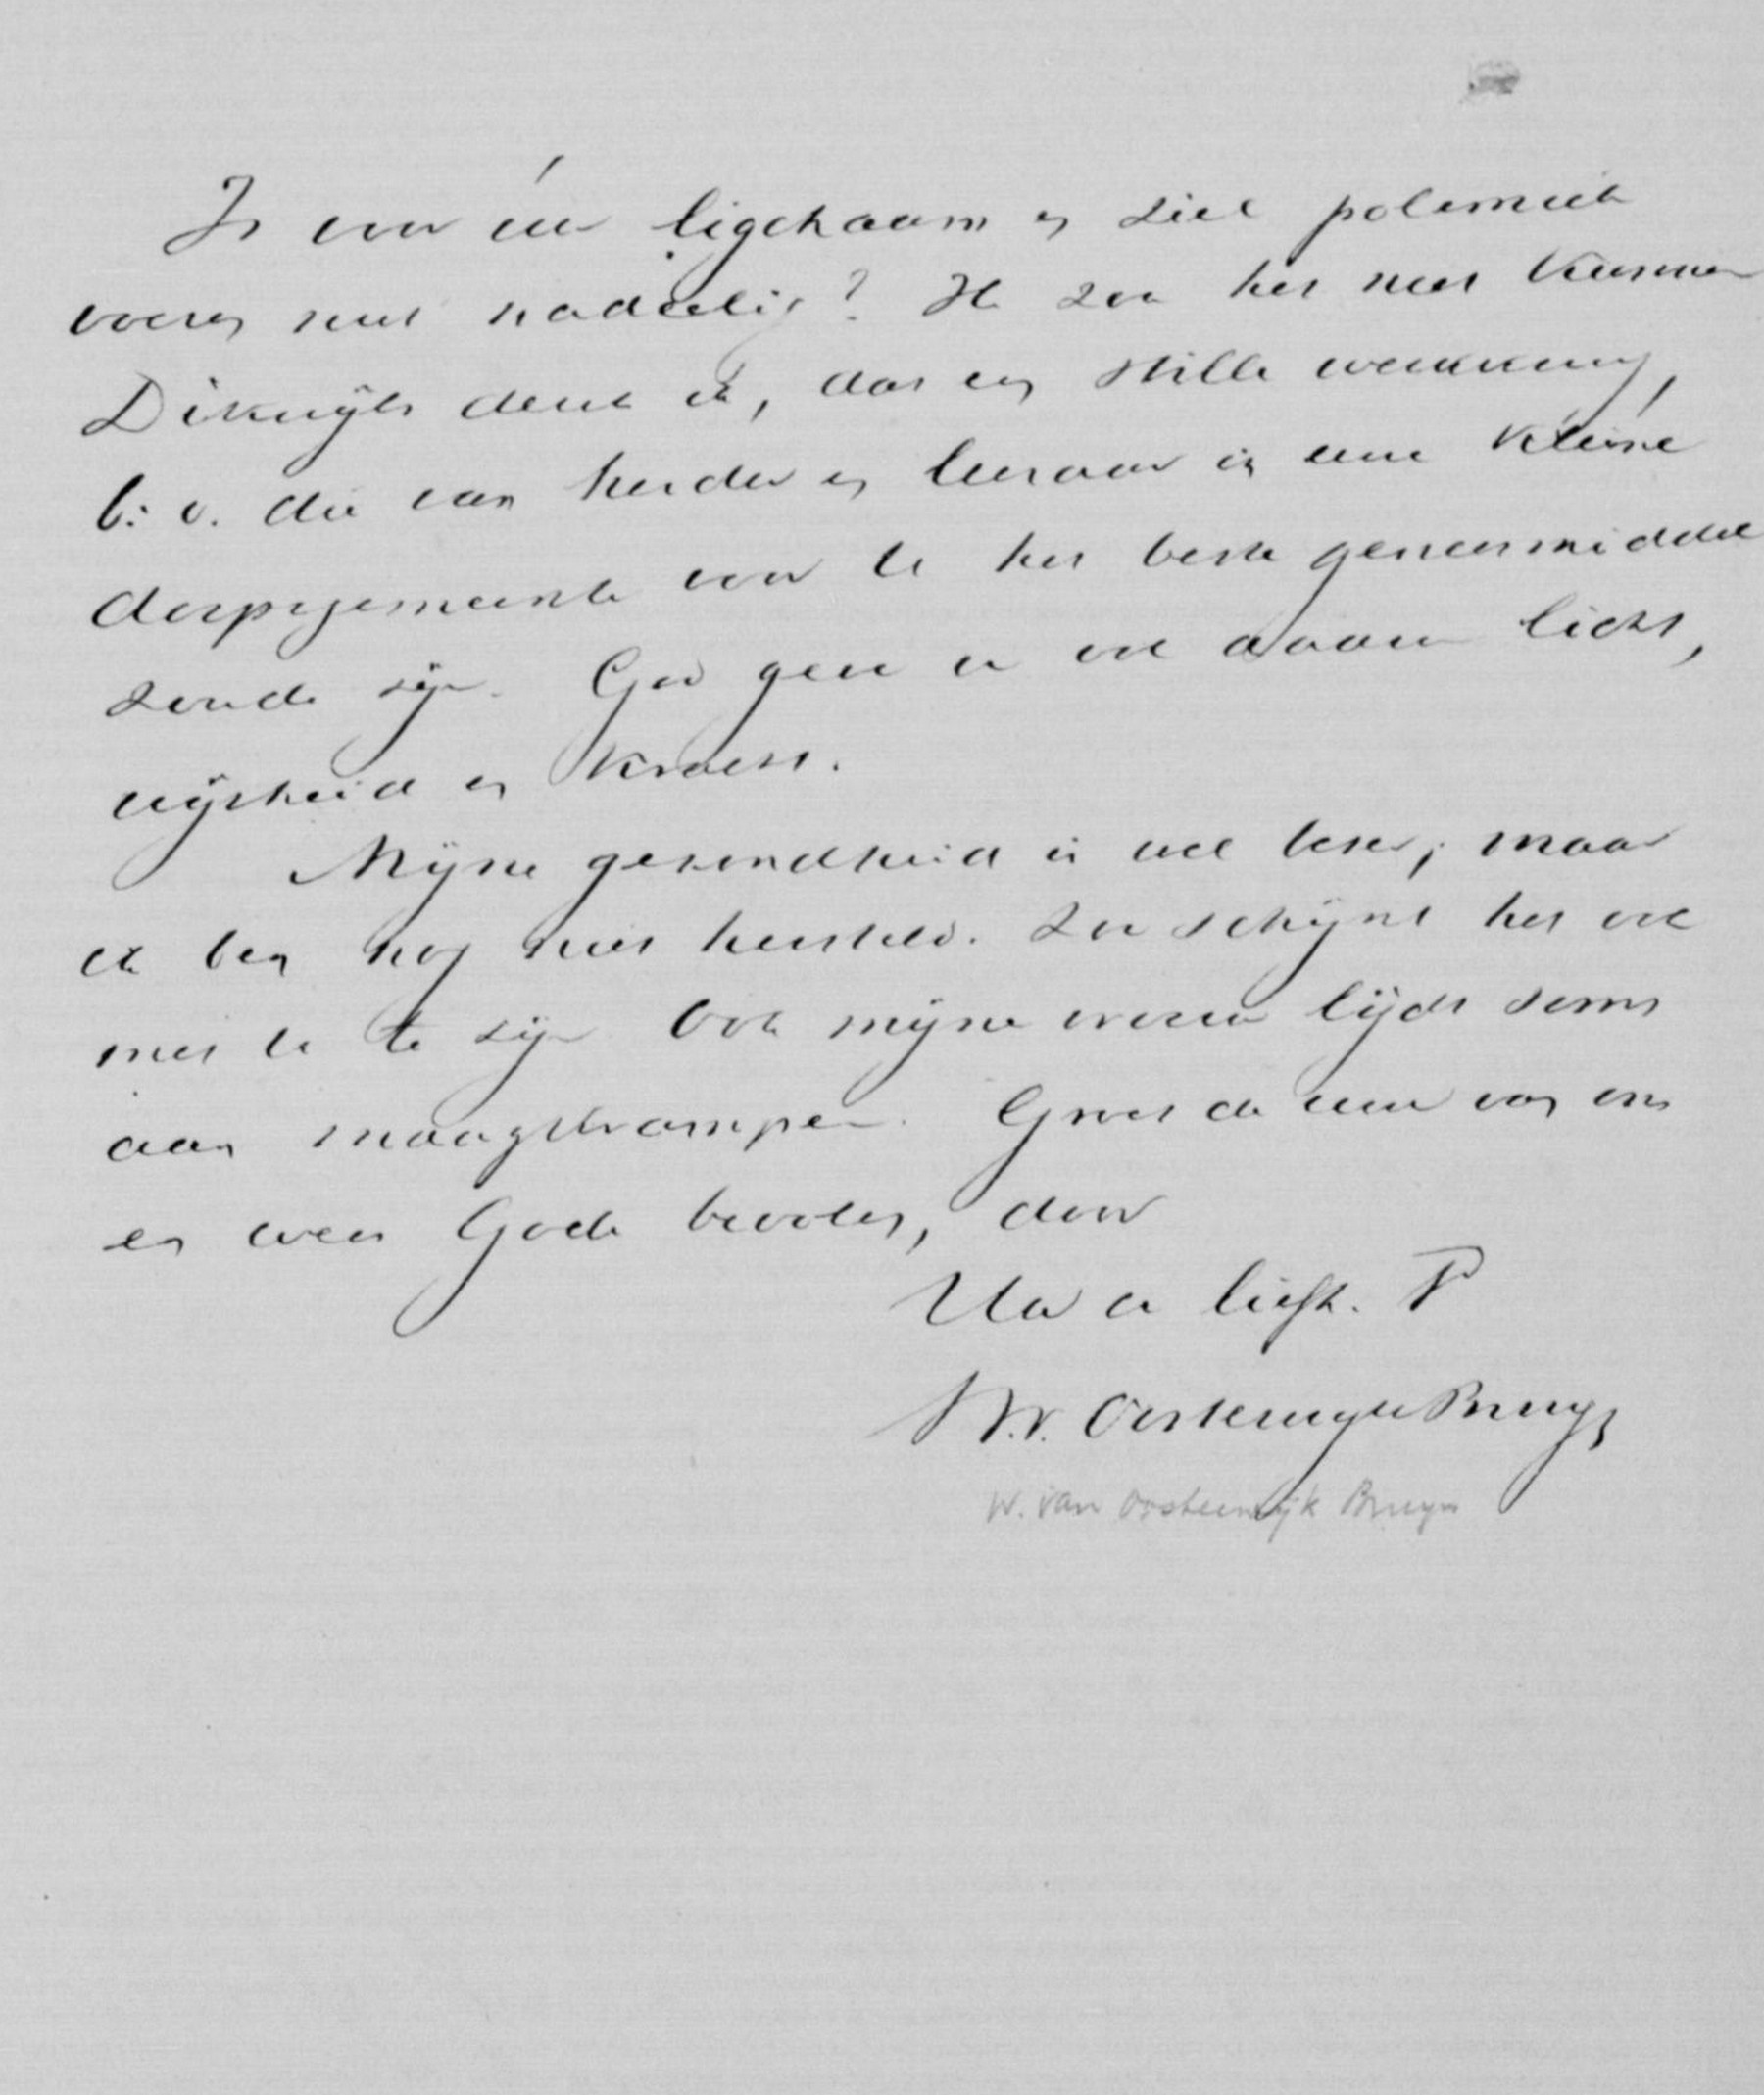 Is voor uw ligchaam en ziel polemiek
voeren niet nadeelig? Ik zou het niet kunnen
Dikwijls denk ik, dat een stille werkkring,
b. v. die van herder en leeraar in eene kleine
dorpsgemeente voor u het beste geneesmiddel
zoude zijn. God geve er ook daarin licht,
wijsheid en kracht.
Mijne gezondheid is veel beter; maar
ik ben nog niet hersteld. Zoo schijnt het ook
met u te zijn. Ook mijne vrouw lijdt soms
aan maagkrampen. Groet de uwe van ons
en wees Gode bevolen, door
Uw u liefh. V
W.v. Oosterwijk Bruyn
W. van Oosterwijk Bruyn